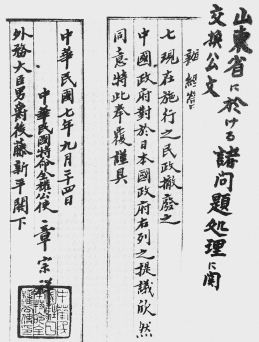 山東省に於ける諸問題処理に関
交換公文
七現在施行之民政撤廢之
中國政府對於日本國政府右列之提議欣然
同意特此奉覆謹具
中華民國七年九月二十四日
中華民國特命全權公使章宗祥
外務大臣男爵後藤新平閣下